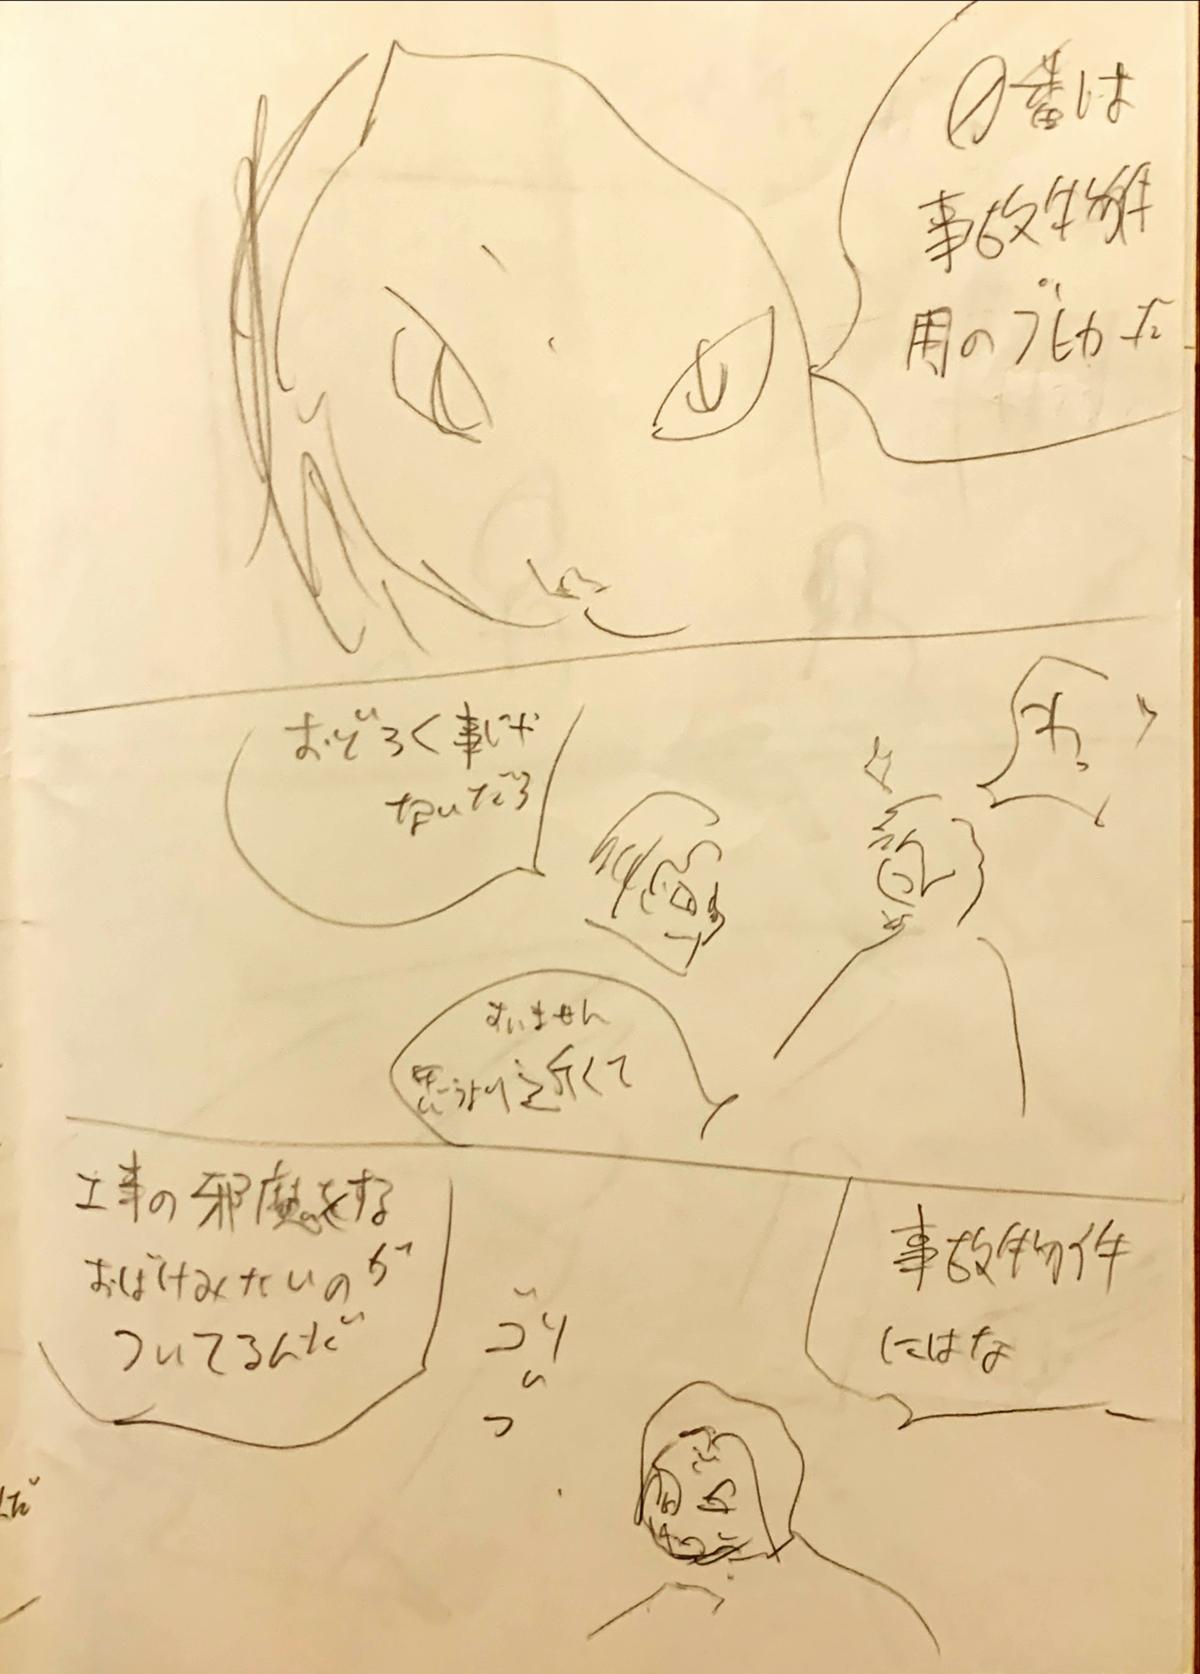 0番は
事故物件
用のブピカだ
わっ
おどろく事じゃ
ないだろ
すいません
思うより近くて
事故物件
にはな
工事の邪魔をする
おばけみたいのが
ついてるんだ
んだ